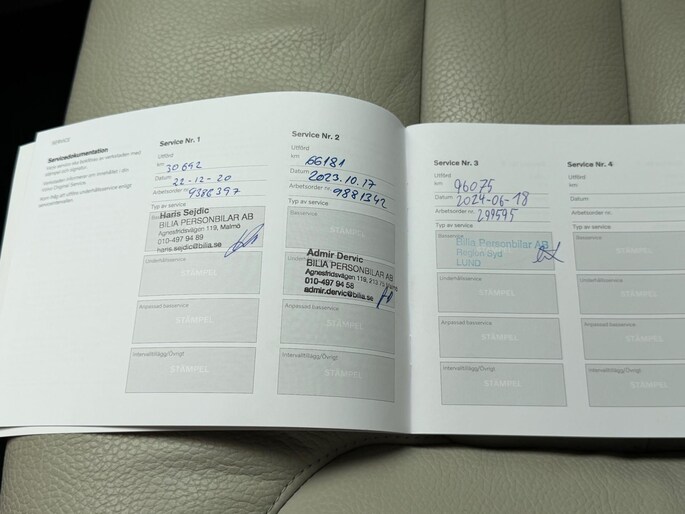 SERVICE
Servicedokumentation
Service Nr. 1
Utförd
km 30 692
Datum 22-12-20
Arbetsorder nr. 9386397
Typ av service
Basservice
Haris Sejdic
BILIA PERSONBILAR AB
Agnesfridsvägen 119, Malmö
010-497 94 89
haris.sejdic@bilia.se
Underhållsservice
STÄMPEL
Anpassad basservice
STÄMPEL
Intervalltillägg/Övrigt
STÄMPEL
Service Nr. 2
Utförd
km 66181
Datum 2023.10.17
Arbetsorder nr. 9881342
Typ av service
Basservice
STÄMPEL
Admir Dervic
BILIA PERSONBILAR AB
Agnesfridsvägen 119, 213 75
010-497 94 58
admir.dervic@bilia.se
Anpassad basservice
STÄMPEL
Intervalltillägg/Övrigt
STÄMPEL
Service Nr. 3
Utförd
km 96075
Datum 2024-06-18
Arbetsorder nr. 299595
Typ av service
Basservice
Bilia Personbilar AB
Region Syd
LUND
Underhållsservice
STÄMPEL
Anpassad basservice
STÄMPEL
Intervalltillägg/Övrigt
STÄMPEL
Service Nr. 4
Utförd
km
Datum
Arbetsorder nr.
Typ av service
Basservice
STÄMPEL
Underhållsservice
STÄMPEL
Anpassad basservice
STÄMPEL
Intervalltillägg/Övrigt
STÄMPEL